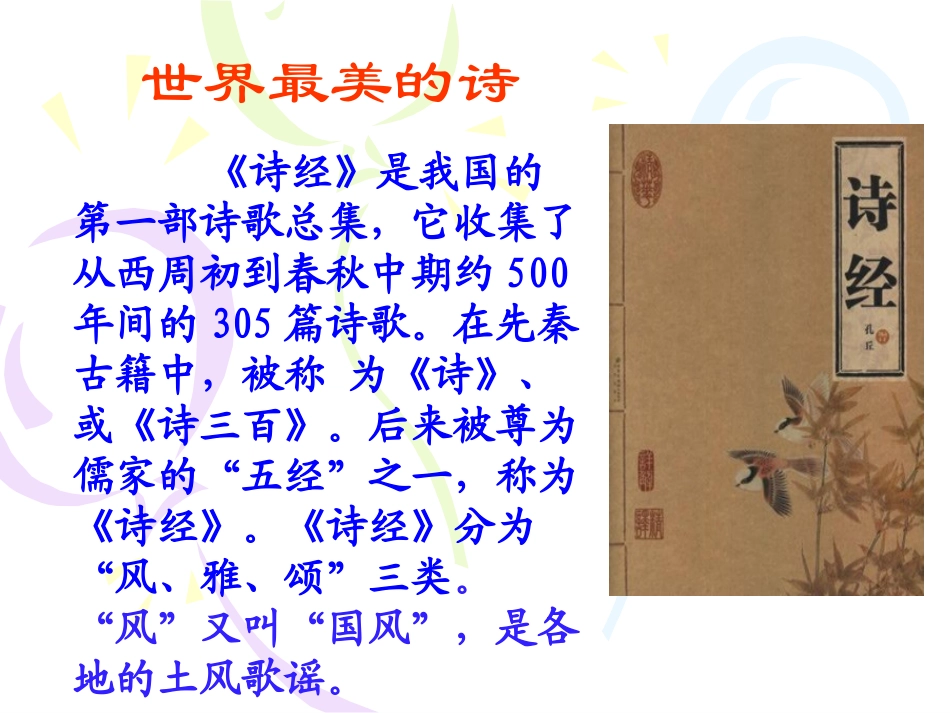 世界最美的诗
《诗经》是我国的
第一部诗歌总集，它收集了
从西周初到春秋中期约 500
年间的 305 篇诗歌。在先秦
古籍中，被称 为《诗》、
或《诗三百》。后来被尊为
儒家的“五经”之一，称为
《诗经》。《诗经》分为
“风、雅、颂”三类。
“风”又叫“国风”，是各
地的土风歌谣。
诗经
孔丘